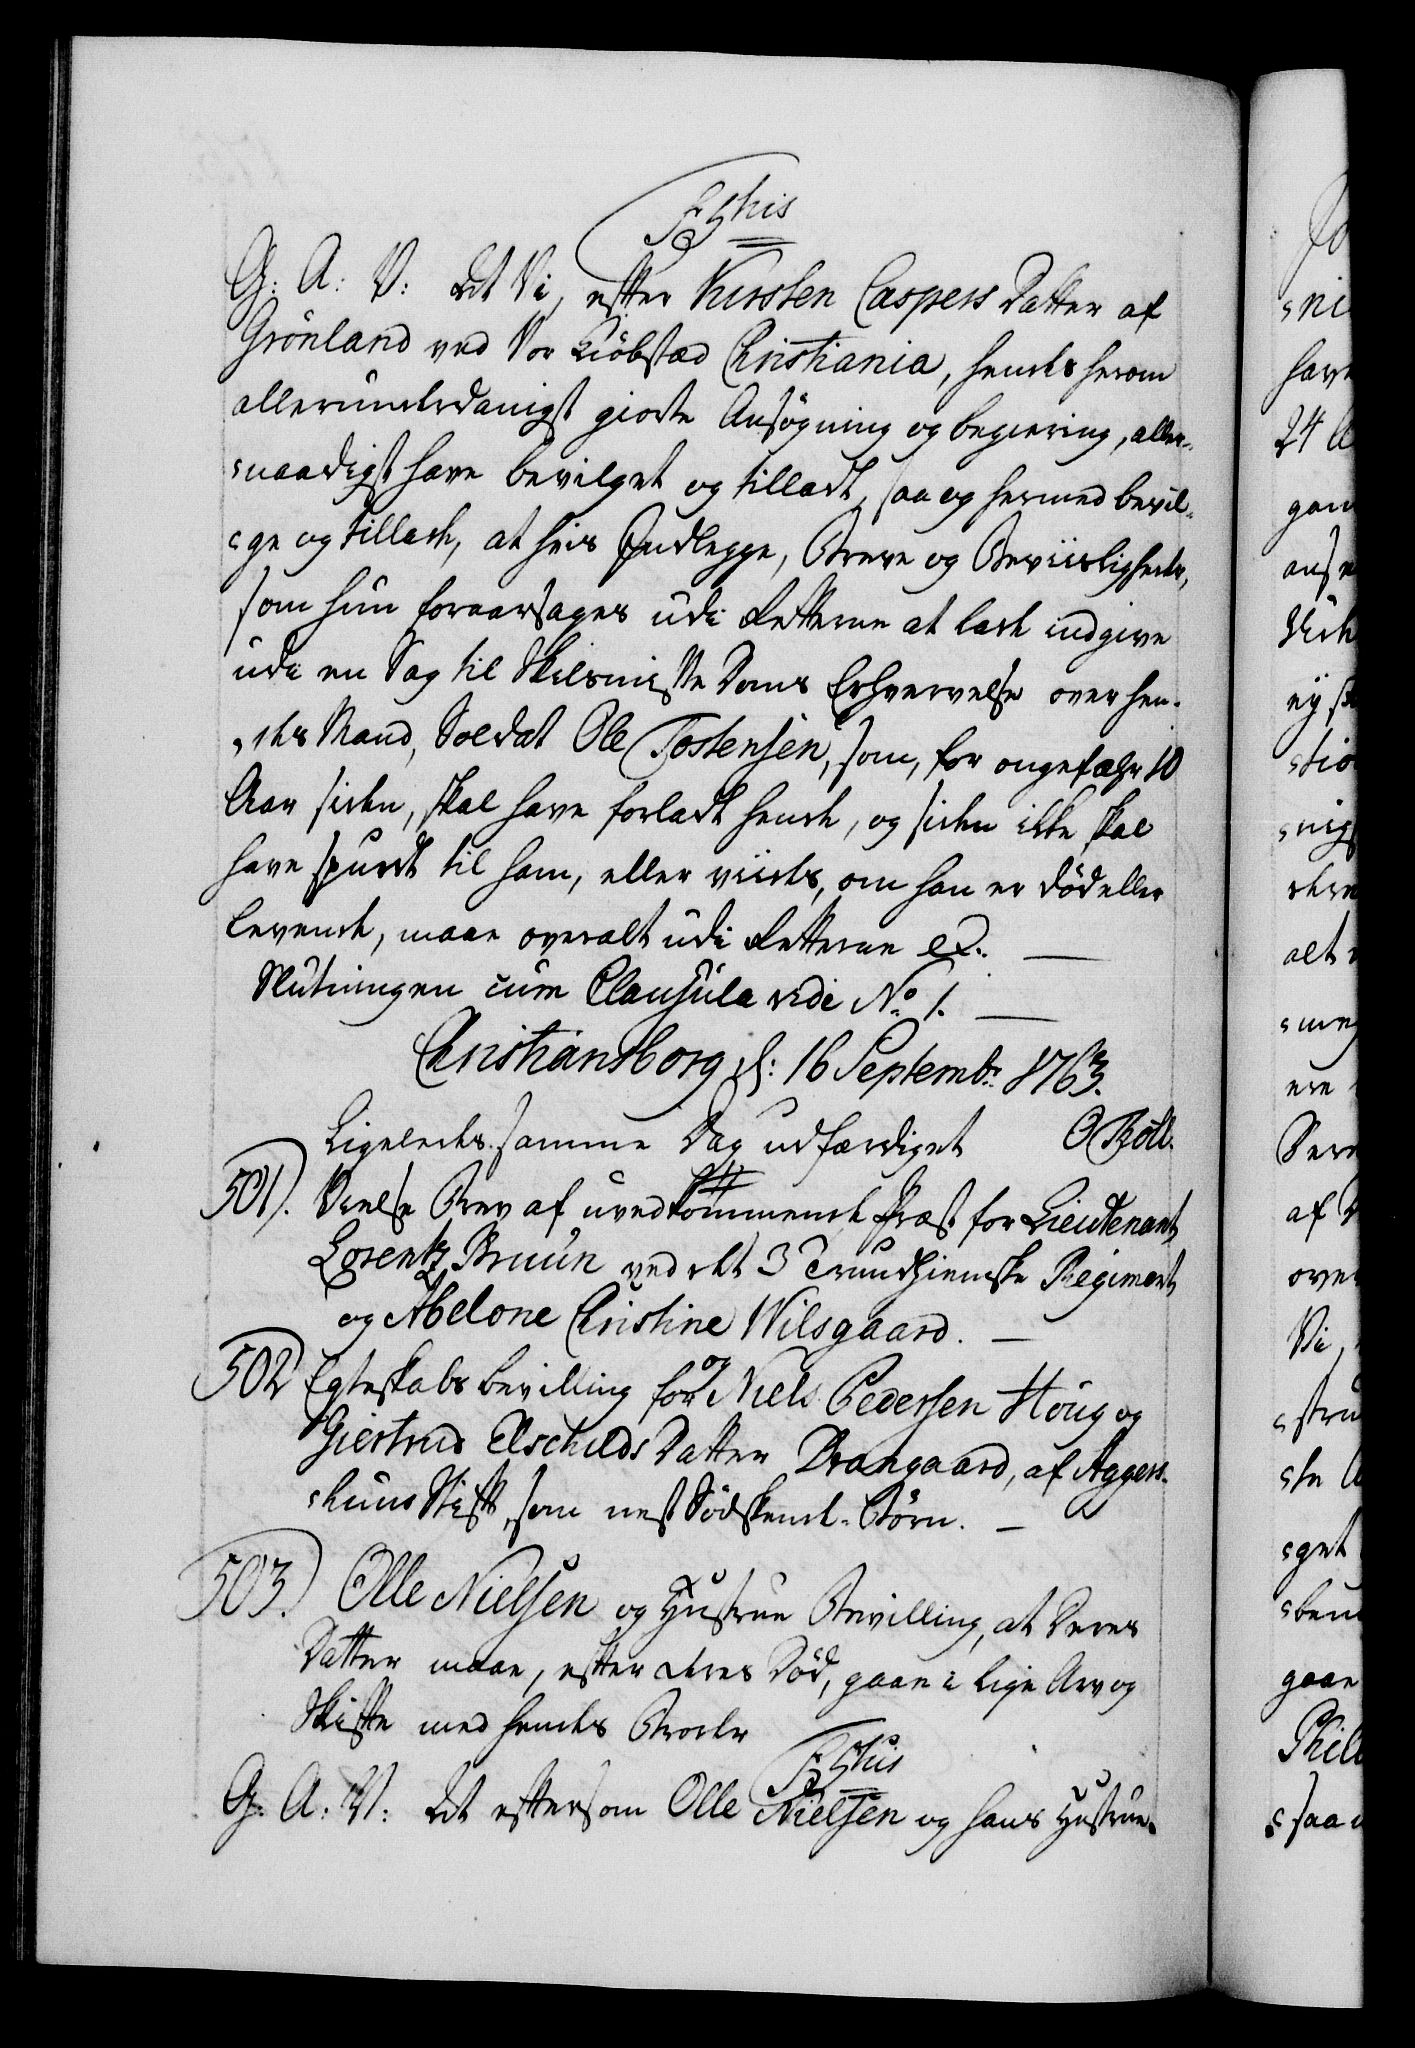 F 5this
G: A: V: At Vi, efter Kirsten Caspers Datter af
Grönland ved Vor Kiöbstæd Christiania, hendes herom
allerunderdanigst giorte Ansøgning og begiering, aller-
naadigst have bevilget og tilladt, saa og hermed bevil-
ge og tillade, at hvis Indlegge, Breve og Beviisligheder,
som hun foraarsages udi Retterne at lade indgive
udi en Sag til Skilsmisse Doms Erhvervelse over hen-
des Mand, Soldat Ole Tostensen, som, for ongefæhr 10
Aar siden, skal have forladt hende, og siden ikke skal
have spurdt til ham, eller viides, om han er død eller
levende, maae overalt udi Retterne etc.
Slutningen cum Clausula vide No 1.
Christiansborg d: 16 Septembr 1763.
Ligeledes samme Dag udfærdiget
501). Vielse Brev af uvedkommende Præst for Lieutenant
Lorentz Bruun ved det 3 Trundhiemske Regiment
og Abelone Christine Wilsgaard.
502 Egteskabs bevilling for og Niels Pedersen Houg og
Giertrud Elschilds Datter Prangaard, af Aggers-
huus Stift, som nest Sødskende-Børn.
503.) Olle Nielsen og Hustrue Bevilling, at Deres
Datter maae, efter deres Død, gaae i lige Arv og
Skifte med hendes Broder
F 5thus
G: A: V: At eftersom Olle Nielsen og hans Hustrue